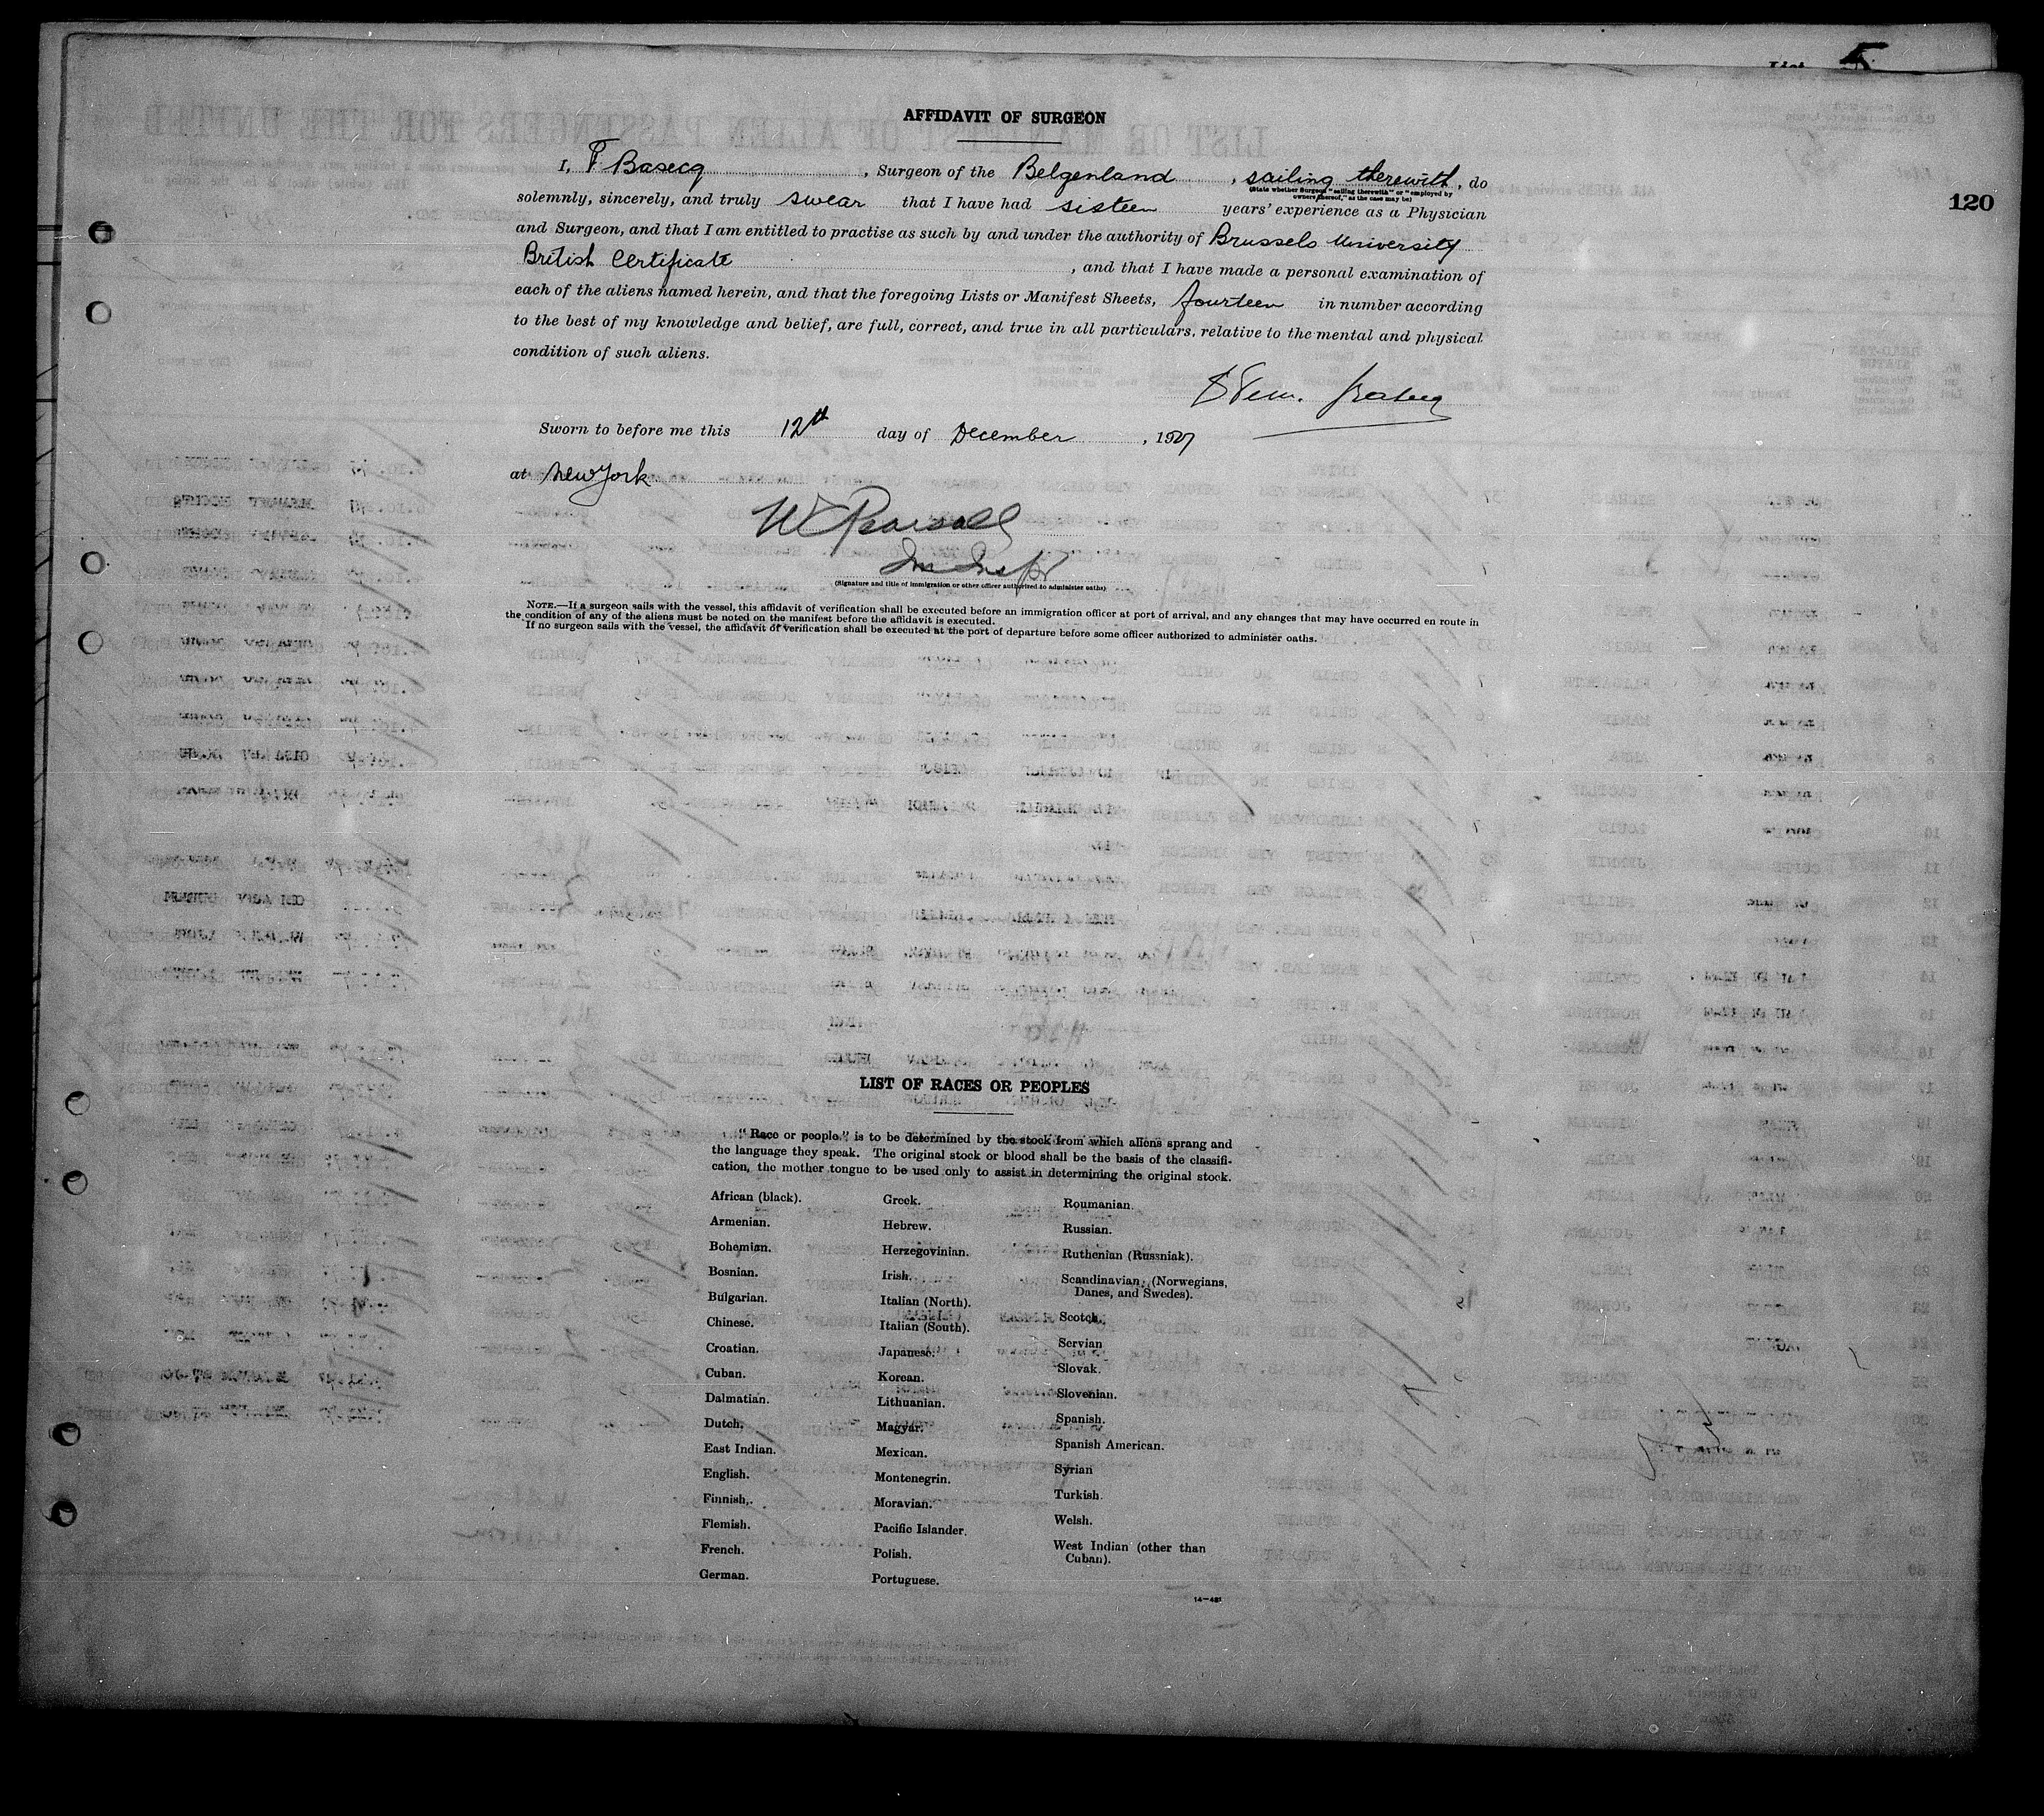 List 5
AFFIDAVIT OF SURGEON
120
I, F Basecq, Surgeon of the Belgenland, sailing therewith, do
(State whether Surgeon "sailing therewith" or "employed by
owners thereof," as the case may be)
solemnly, sincerely, and truly swear that I have had sixteen years' experience as a Physician
and Surgeon, and that I am entitled to practise as such by and under the authority of Brussels University
British Certificate, and that I have made a personal examination of
each of the aliens named herein, and that the foregoing Lists or Manifest Sheets, fourteen in number according
to the best of my knowledge and belief, are full, correct, and true in all particulars, relative to the mental and physical
condition of such aliens.
Sworn to before me this 12th day of December, 1927
at New York
(Signature and title of immigration or other officer authorized to administer oaths)
NOTE.—If a surgeon sails with the vessel, this affidavit of verification shall be executed before an immigration officer at port of arrival, and any changes that may have occurred en route in
the condition of any of the aliens must be noted on the manifest before the affidavit is executed.
If no surgeon sails with the vessel, the affidavit of verification shall be executed at the port of departure before some officer authorized to administer oaths.
LIST OF RACES OR PEOPLES
"Race or people" is to be determined by the stock from which aliens sprang and
the language they speak. The original stock or blood shall be the basis of the classifi-
cation, the mother tongue to be used only to assist in determining the original stock.
African (black).
Armenian.
Bohemian.
Bosnian.
Bulgarian.
Chinese.
Croatian.
Cuban.
Dalmatian.
Dutch.
East Indian.
English.
Finnish.
Flemish.
French.
German.
Greek.
Hebrew.
Herzegovinian.
Irish.
Italian (North).
Italian (South).
Japanese.
Korean.
Lithuanian.
Magyar.
Mexican.
Montenegrin.
Moravian.
Pacific Islander.
Polish.
Portuguese.
Roumanian.
Russian.
Ruthenian (Russniak).
Scandinavian (Norwegians,
Danes, and Swedes).
Scotch.
Servian
Slovak.
Slovenian.
Spanish.
Spanish American.
Syrian
Turkish.
Welsh.
West Indian (other than
Cuban).
14—431